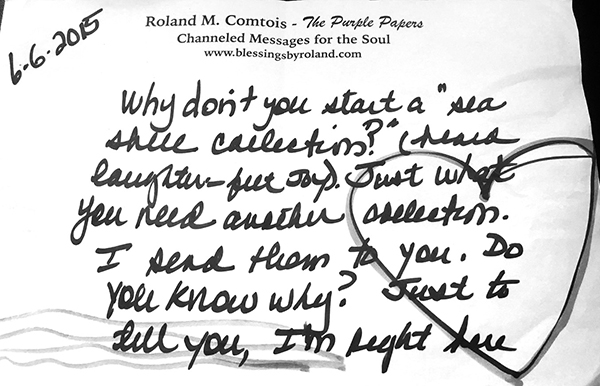 6-6-2015
Roland M. Comtois - The Purple Papers
Channeled Messages for the Soul
www.blessingsbyroland.com
Why don't you start a "sea
shell collection?" (heard
laughter-felt Joy). Just what
you need another collection.
I send them to you. Do
you know why? Just to
tell you, I'm right here